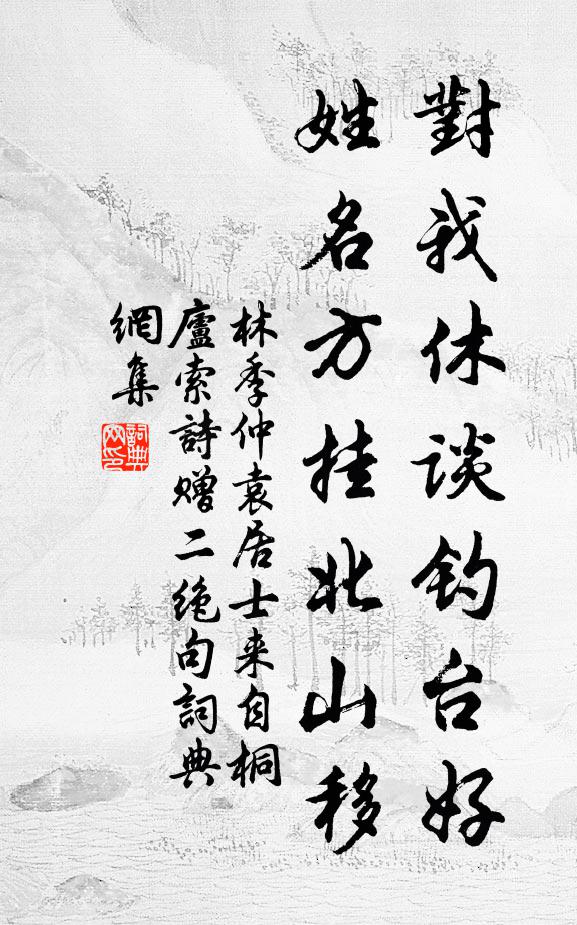 對我休談钓台好
姓名方挂北山移
林季仲袁居士来自桐
廬索詩赠二绝句詞典
網集
詞典
网印